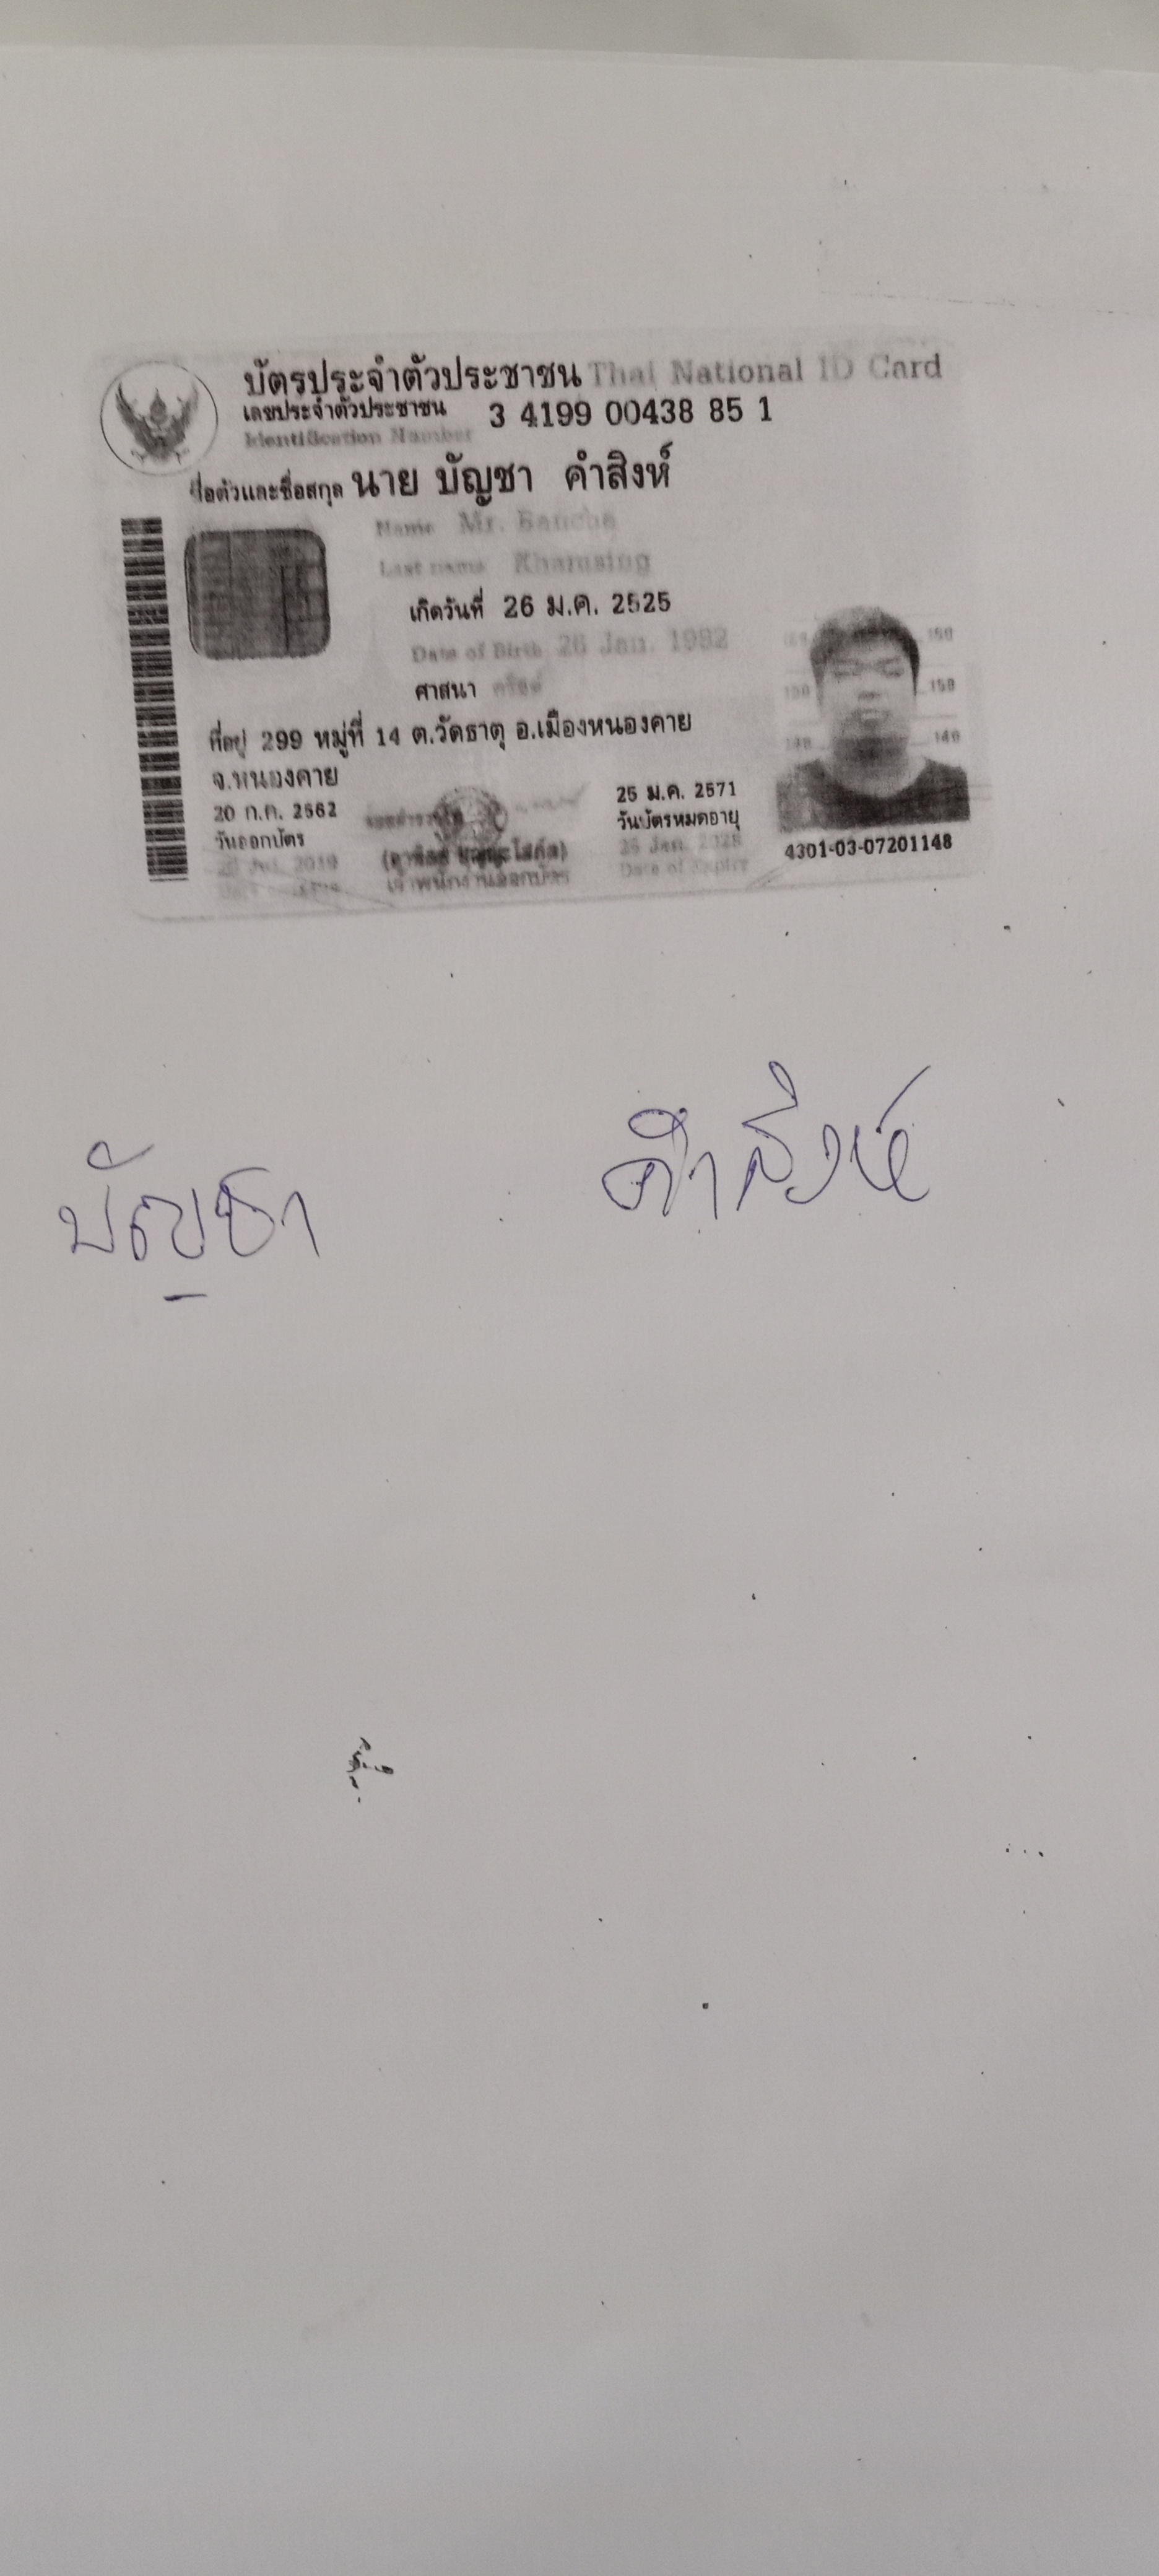 บัตรประจำตัวประชาชน Thai National ID Card
เลขประจำตัวประชาชน 3 4199 00438 85 1
Identification Number
ชื่อตัวและชื่อสกุล นาย บัญชา คำสิงห์
Name Mr. Bancha
Last name Khamsing
เกิดวันที่ 26 ม.ค. 2525
Date of Birth 26 Jan. 1982
ศาสนา คริสต์
150 150
140 140
ที่อยู่ 299 หมู่ที่ 14 ต.วัดธาตุ อ.เมืองหนองคาย
จ.หนองคาย
20 ก.ค. 2562
วันออกบัตร
20 Jul. 2019
เจ้าพนักงานออกบัตร
25 ม.ค. 2571
วันบัตรหมดอายุ
25 Jan. 2028
Date of Expiry
4301-03-07201148
บัญชา คำสิงห์